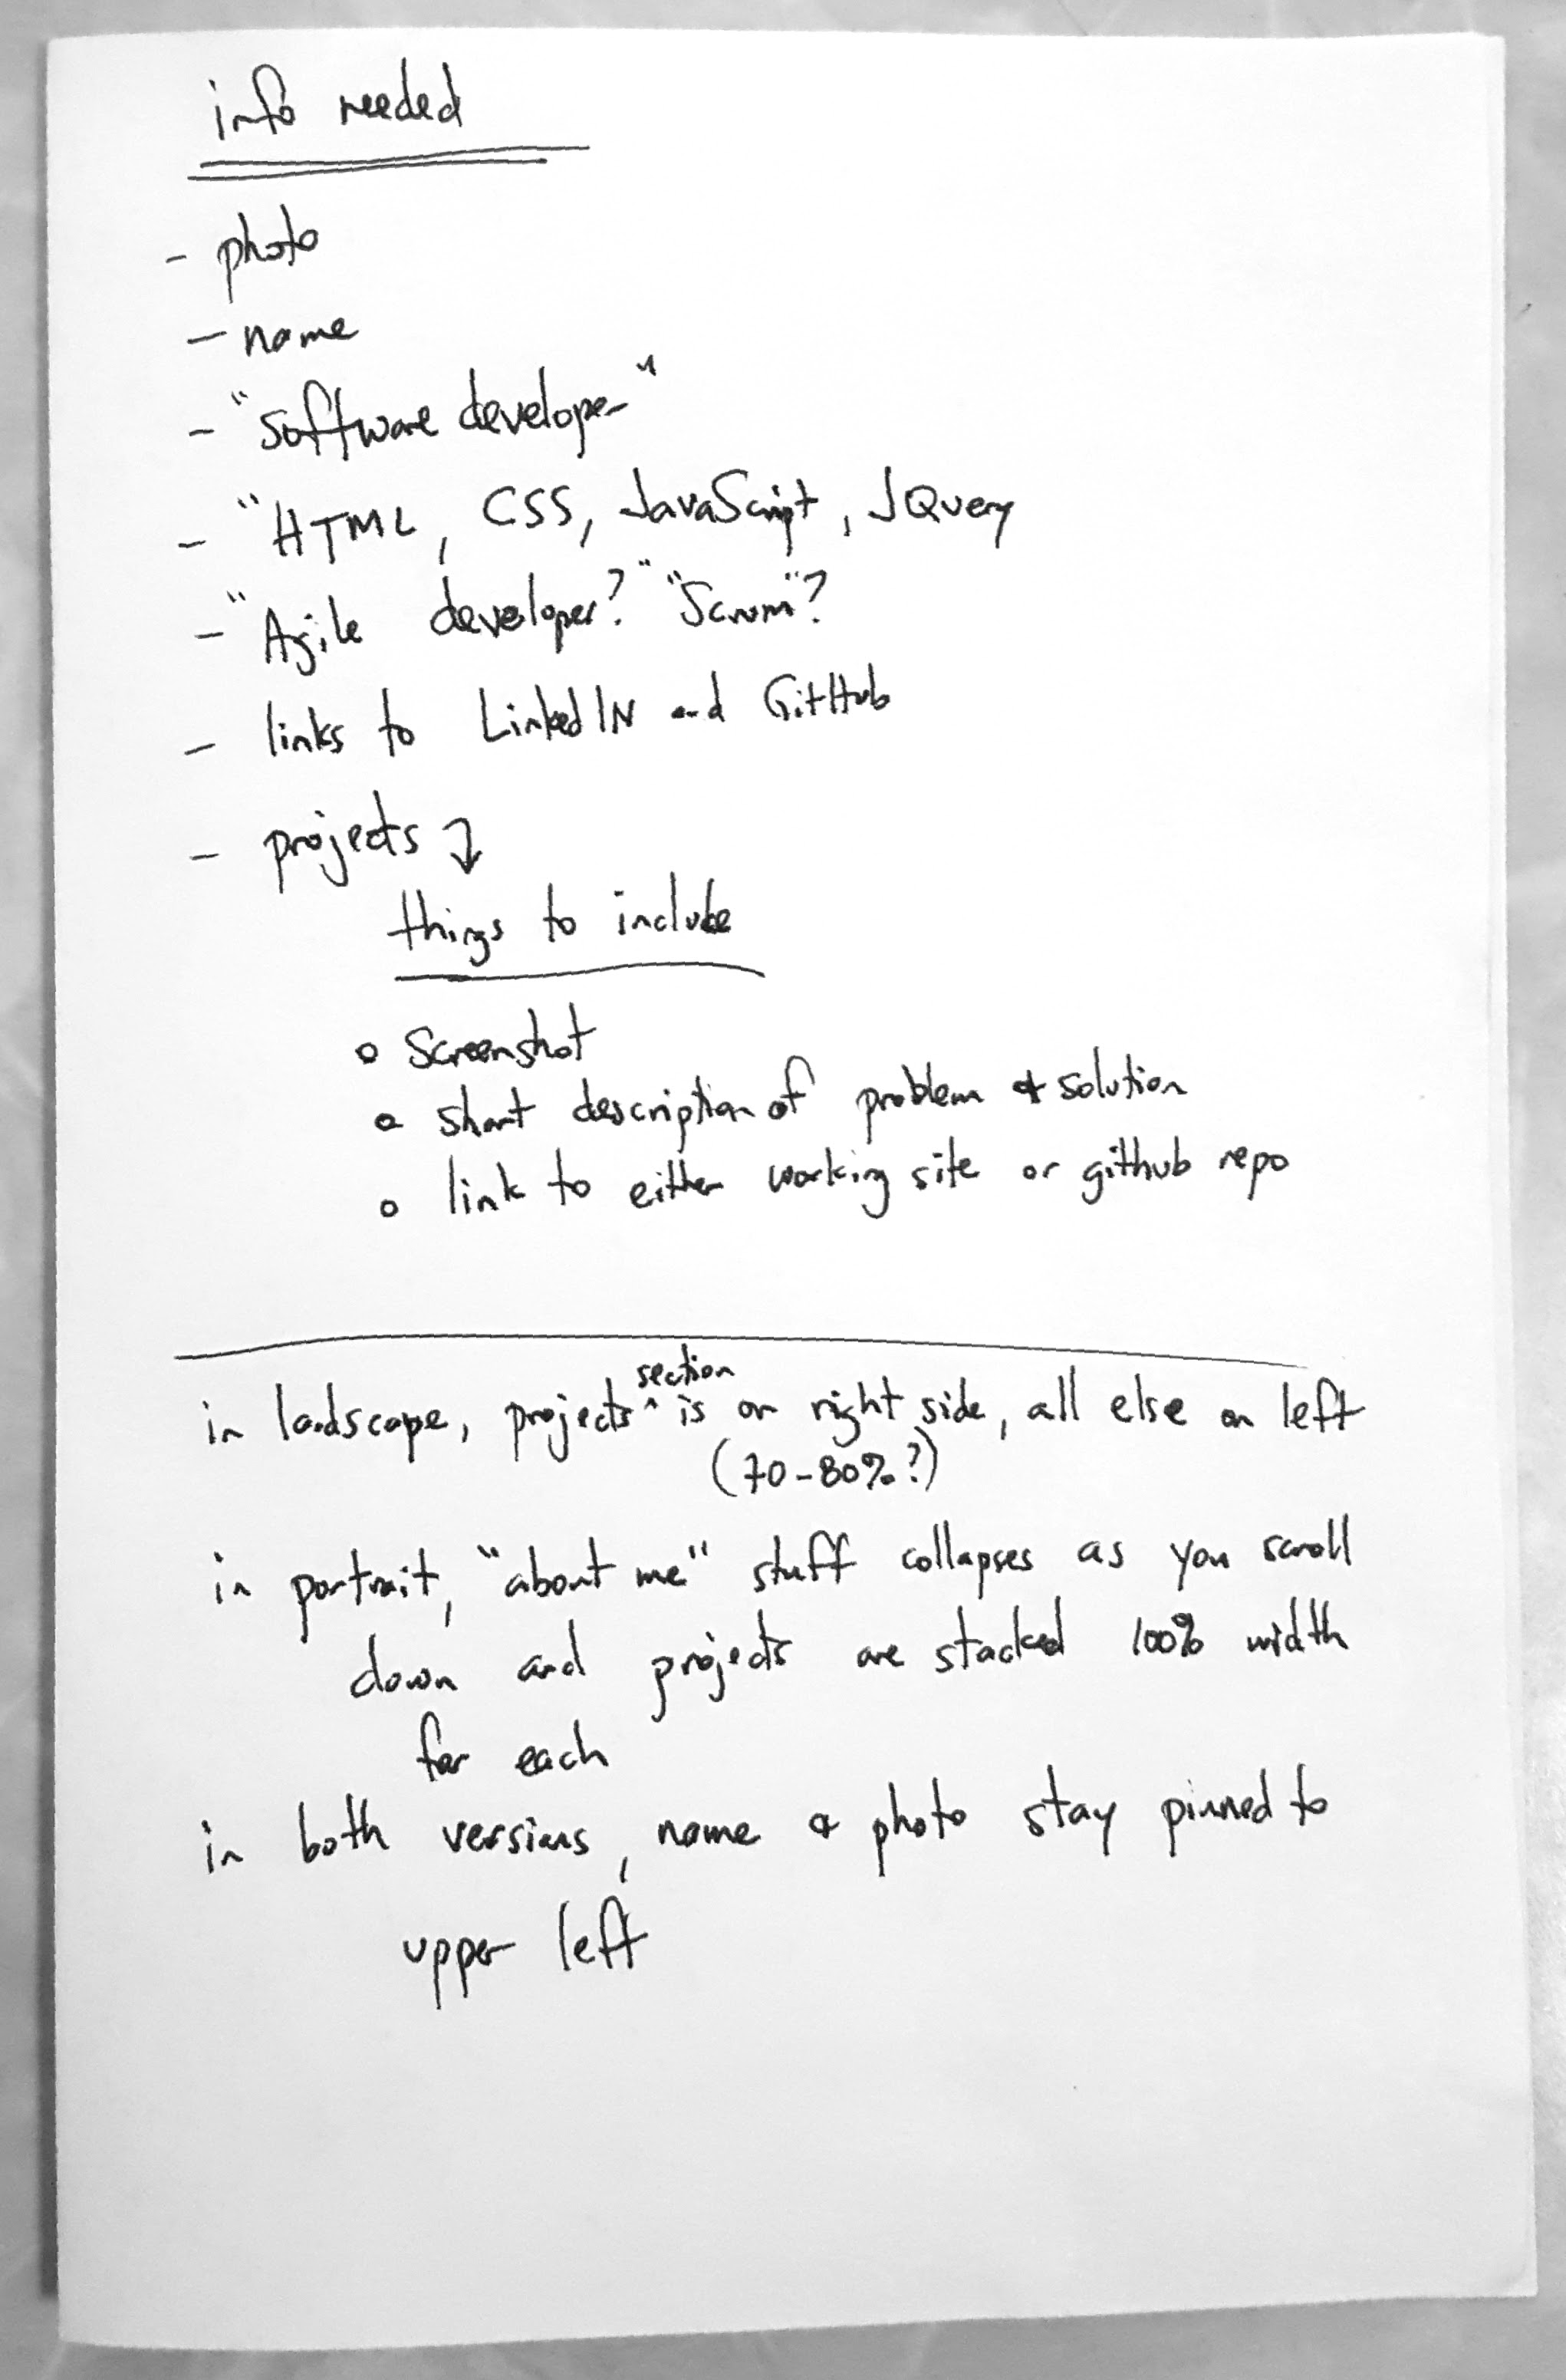 info needed
- photo
- name
- "software developer"
- "HTML, CSS, JavaScript, JQuery
- "Agile developer?" "Scrum"?
- links to LinkedIN and GitHub
- projects ↴
things to include
o Screenshot
o short description of problem & solution
o link to either working site or github repo
in landscape, projects ^section is on right side, all else on left
(70-80%?)
in portrait, "about me" stuff collapses as you scroll
down and projects are stacked 100% width
for each
in both versions, name & photo stay pinned to
upper left